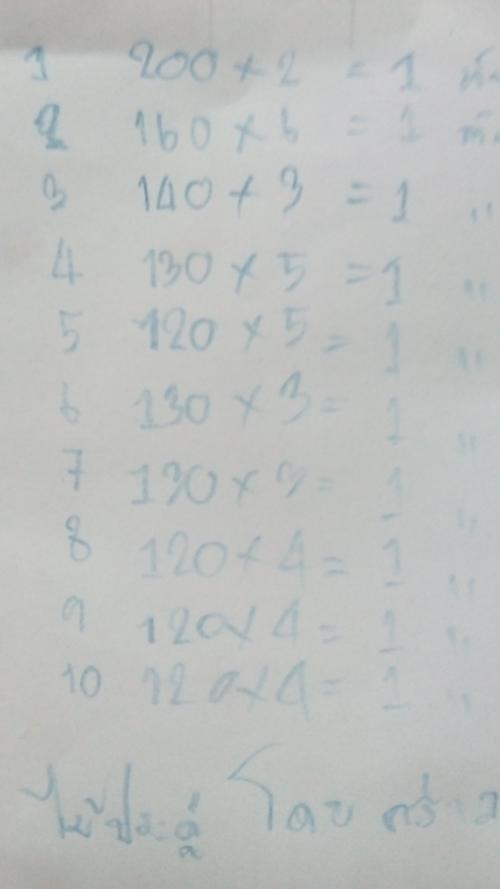 1 200 x 2 = 1
2 160 x 6 = 1
3 140 x 3 = 1 "
4 130 x 5 = 1 "
5 120 x 5 = 1 "
6 130 x 3 = 1 "
7 130 x 3 = 1 "
8 120 x 4 = 1 "
9 120 x 4 = 1 "
10 120 x 4 = 1 "
ไม้ประดู่ โดย